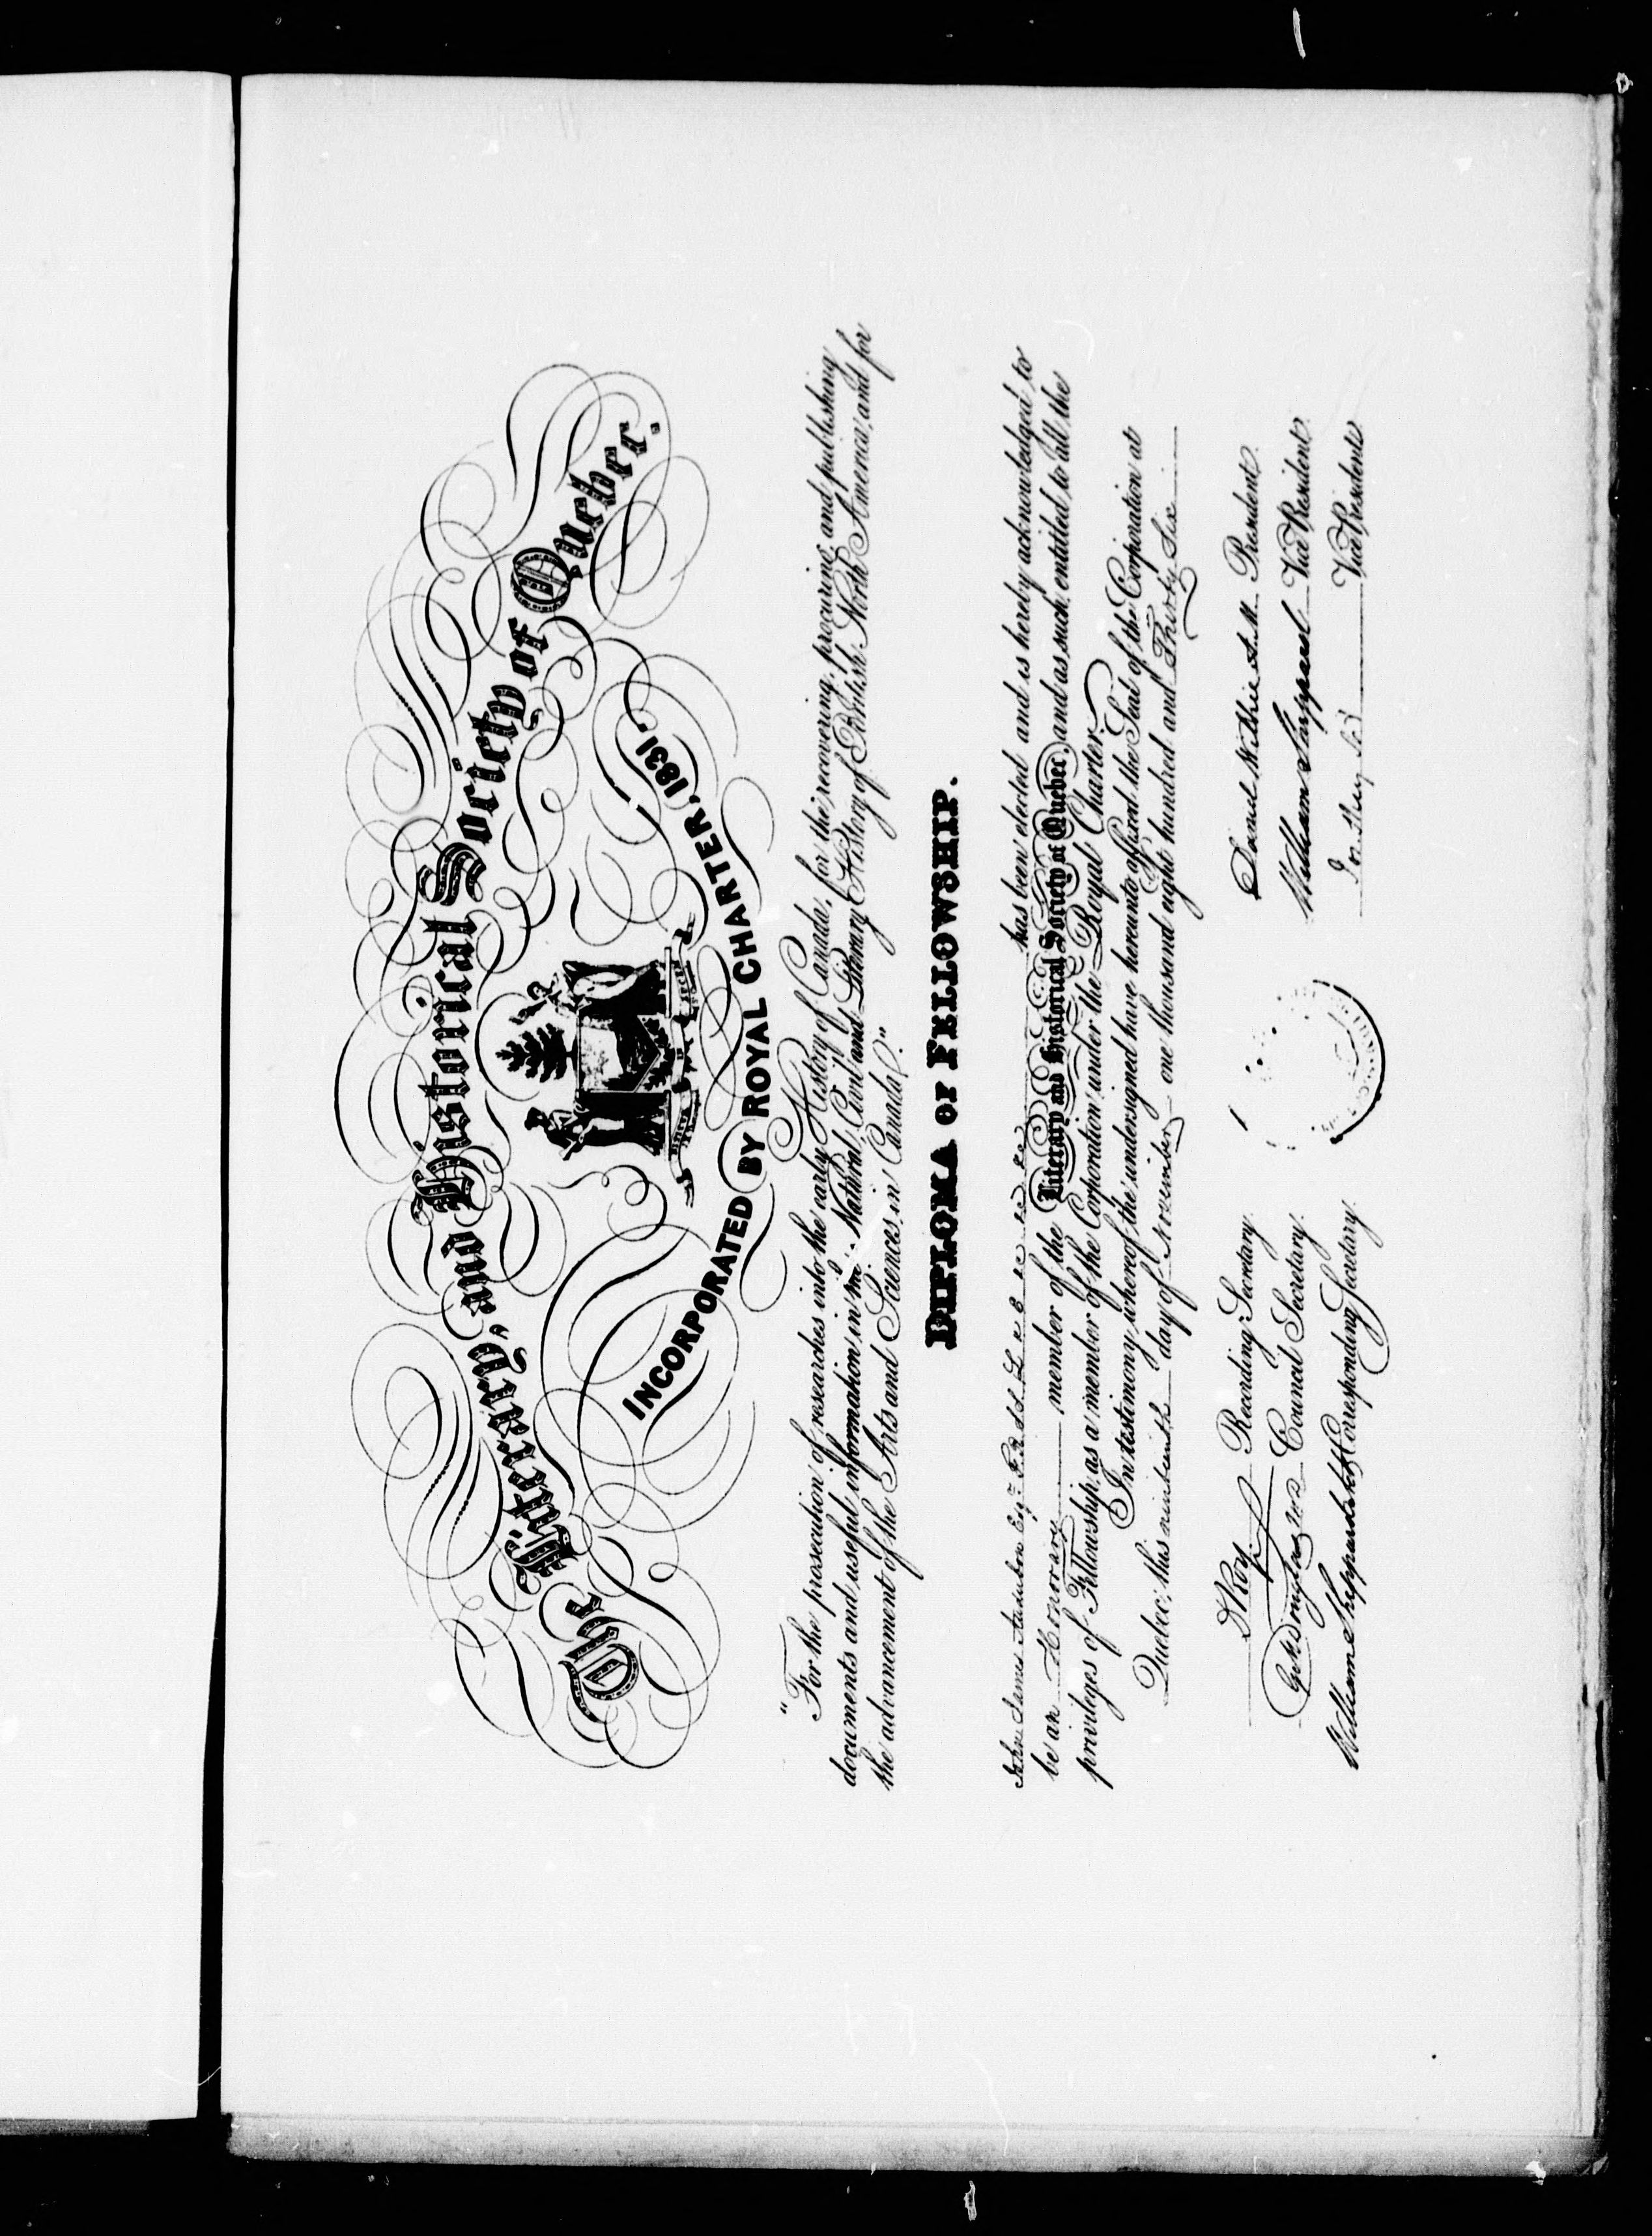 The Literary, and Historical Society of Quebec.
INCORPORATED BY ROYAL CHARTER, 1831.
"For the prosecution of researches into the early History of Canada, for the recovering, procuring, and publishing
documents and useful information in the Natural, Civil and Literary History of British North America, and for
the advancement of the Arts and Sciences, in Canada."
DIPLOMA OF FELLOWSHIP.
John James Audubon Esqr. F.R.SS. L & E &c &c &c &c has been elected and is hereby acknowledged to
be an Honorary member of the Literary and Historical Society of Quebec, and as such, entitled to all the
privileges of Fellowship, as a member of the Corporation, under the Royal Charter.
In testimony whereof the undersigned have hereunto affixed the Seal of the Corporation at
Quebec, this nineteenth day of November one thousand eight hundred and Thirty Six
D Roy Recording Secretary.
Council Secretary.
William Sheppard Corresponding Secretary.
Daniel Wilkie A.M. President.
William Sheppard Vice President.
Vice President